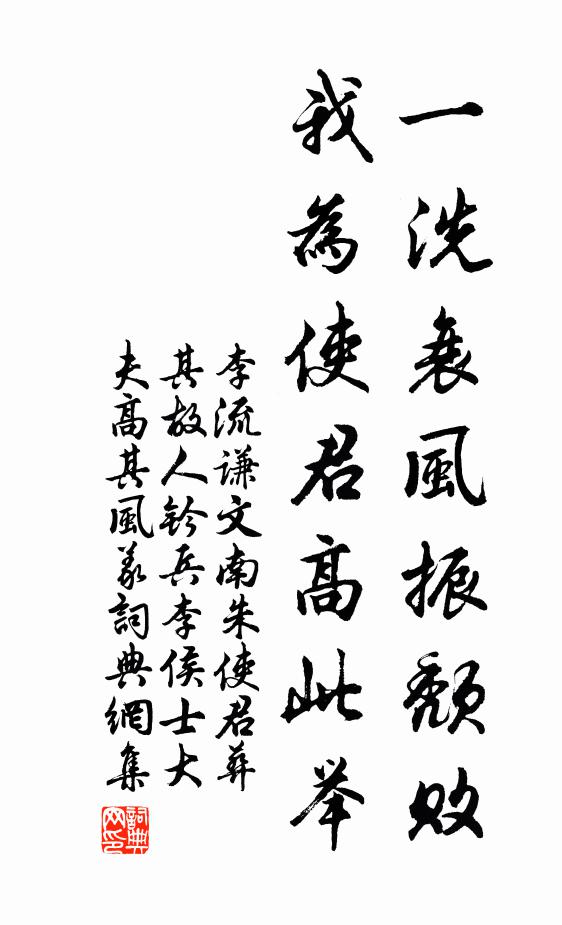 一洗衰風振頹敗
我為使君高此举
李流谦文南朱使君葬
其故人鈐兵李侯士大
夫高其風義詞典網集
詞典网印